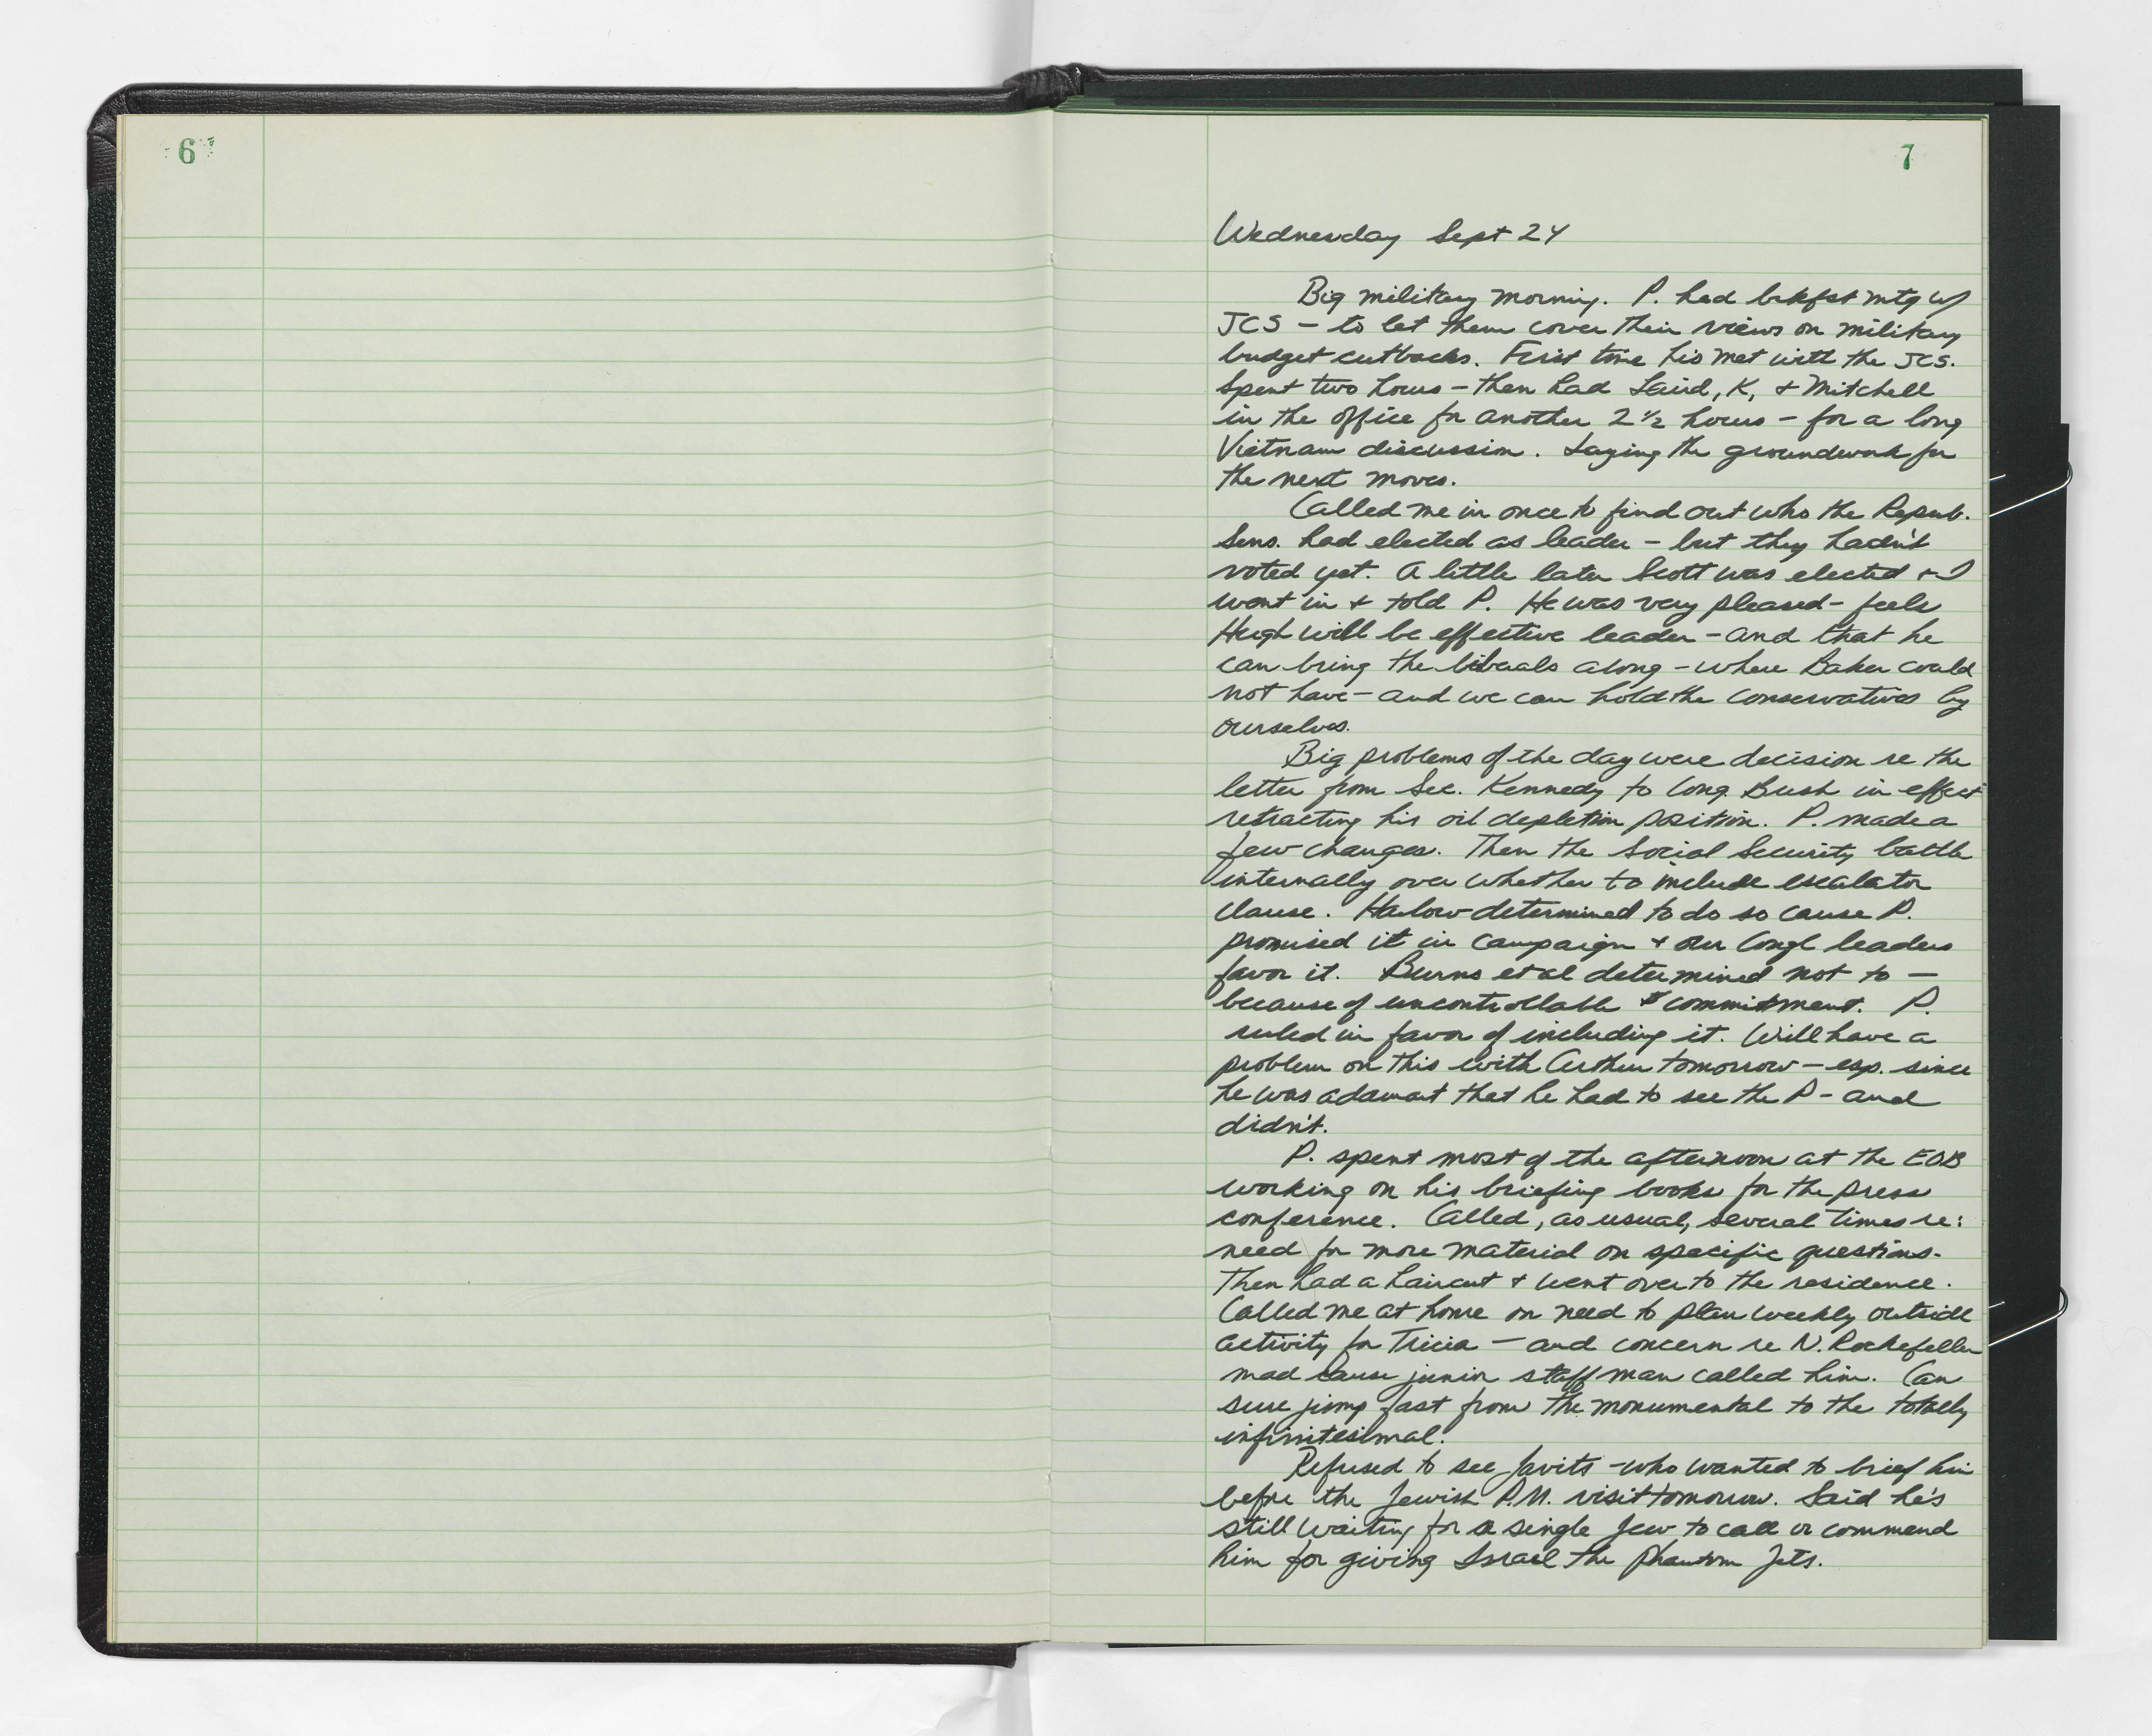 6
7
Wednesday Sept 24
Big military morning. P. had bkfst mtg w/
JCS – to let them cover their views on military
budget cutbacks. First time he's met with the JCS.
Spent two hours – then had Laird, K, + Mitchell
in the office for another 2 ½ hours – for a long
Vietnam discussion. Laying the groundwork for
the next moves.
Called me in once to find out who the Repub.
Sens. had elected as leader – but they hadn't
voted yet. A little later Scott was elected + I
went in + told P. He was very pleased – feels
Hugh will be effective leader – and that he
can bring the liberals along – where Baker could
not have – and we can hold the conservatives by
ourselves.
Big problems of the day were decision re the
letter from Sec. Kennedy to Cong. Bush in effect
retracting his oil depletion position. P. made a
few changes. Then the Social Security battle
internally over whether to include escalator
clause. Harlow determined to do so cause P.
promised it in campaign + our Congl leaders
favor it. Burns et al determined not to –
because of uncontrollable $ commitment. P.
ruled in favor of including it. Will have a
problem on this with Arthur tomorrow – esp. since
he was adamant that he had to see the P – and
didn't.
P. spent most of the afternoon at the EOB
working on his briefing books for the press
conference. Called, as usual, several times re:
need for more material on specific questions.
Then had a haircut + went over to the residence.
Called me at home on need to plan weekly outside
activity for Tricia – and concern re N. Rockefeller
mad cause junior staff man called him. Can
sure jump fast from the monumental to the totally
infinitesimal.
Refused to see Javits – who wanted to brief him
before the Jewish P.M. visit tomorrow. Said he's
still waiting for a single Jew to call or commend
him for giving Israel the Phantom Jets.